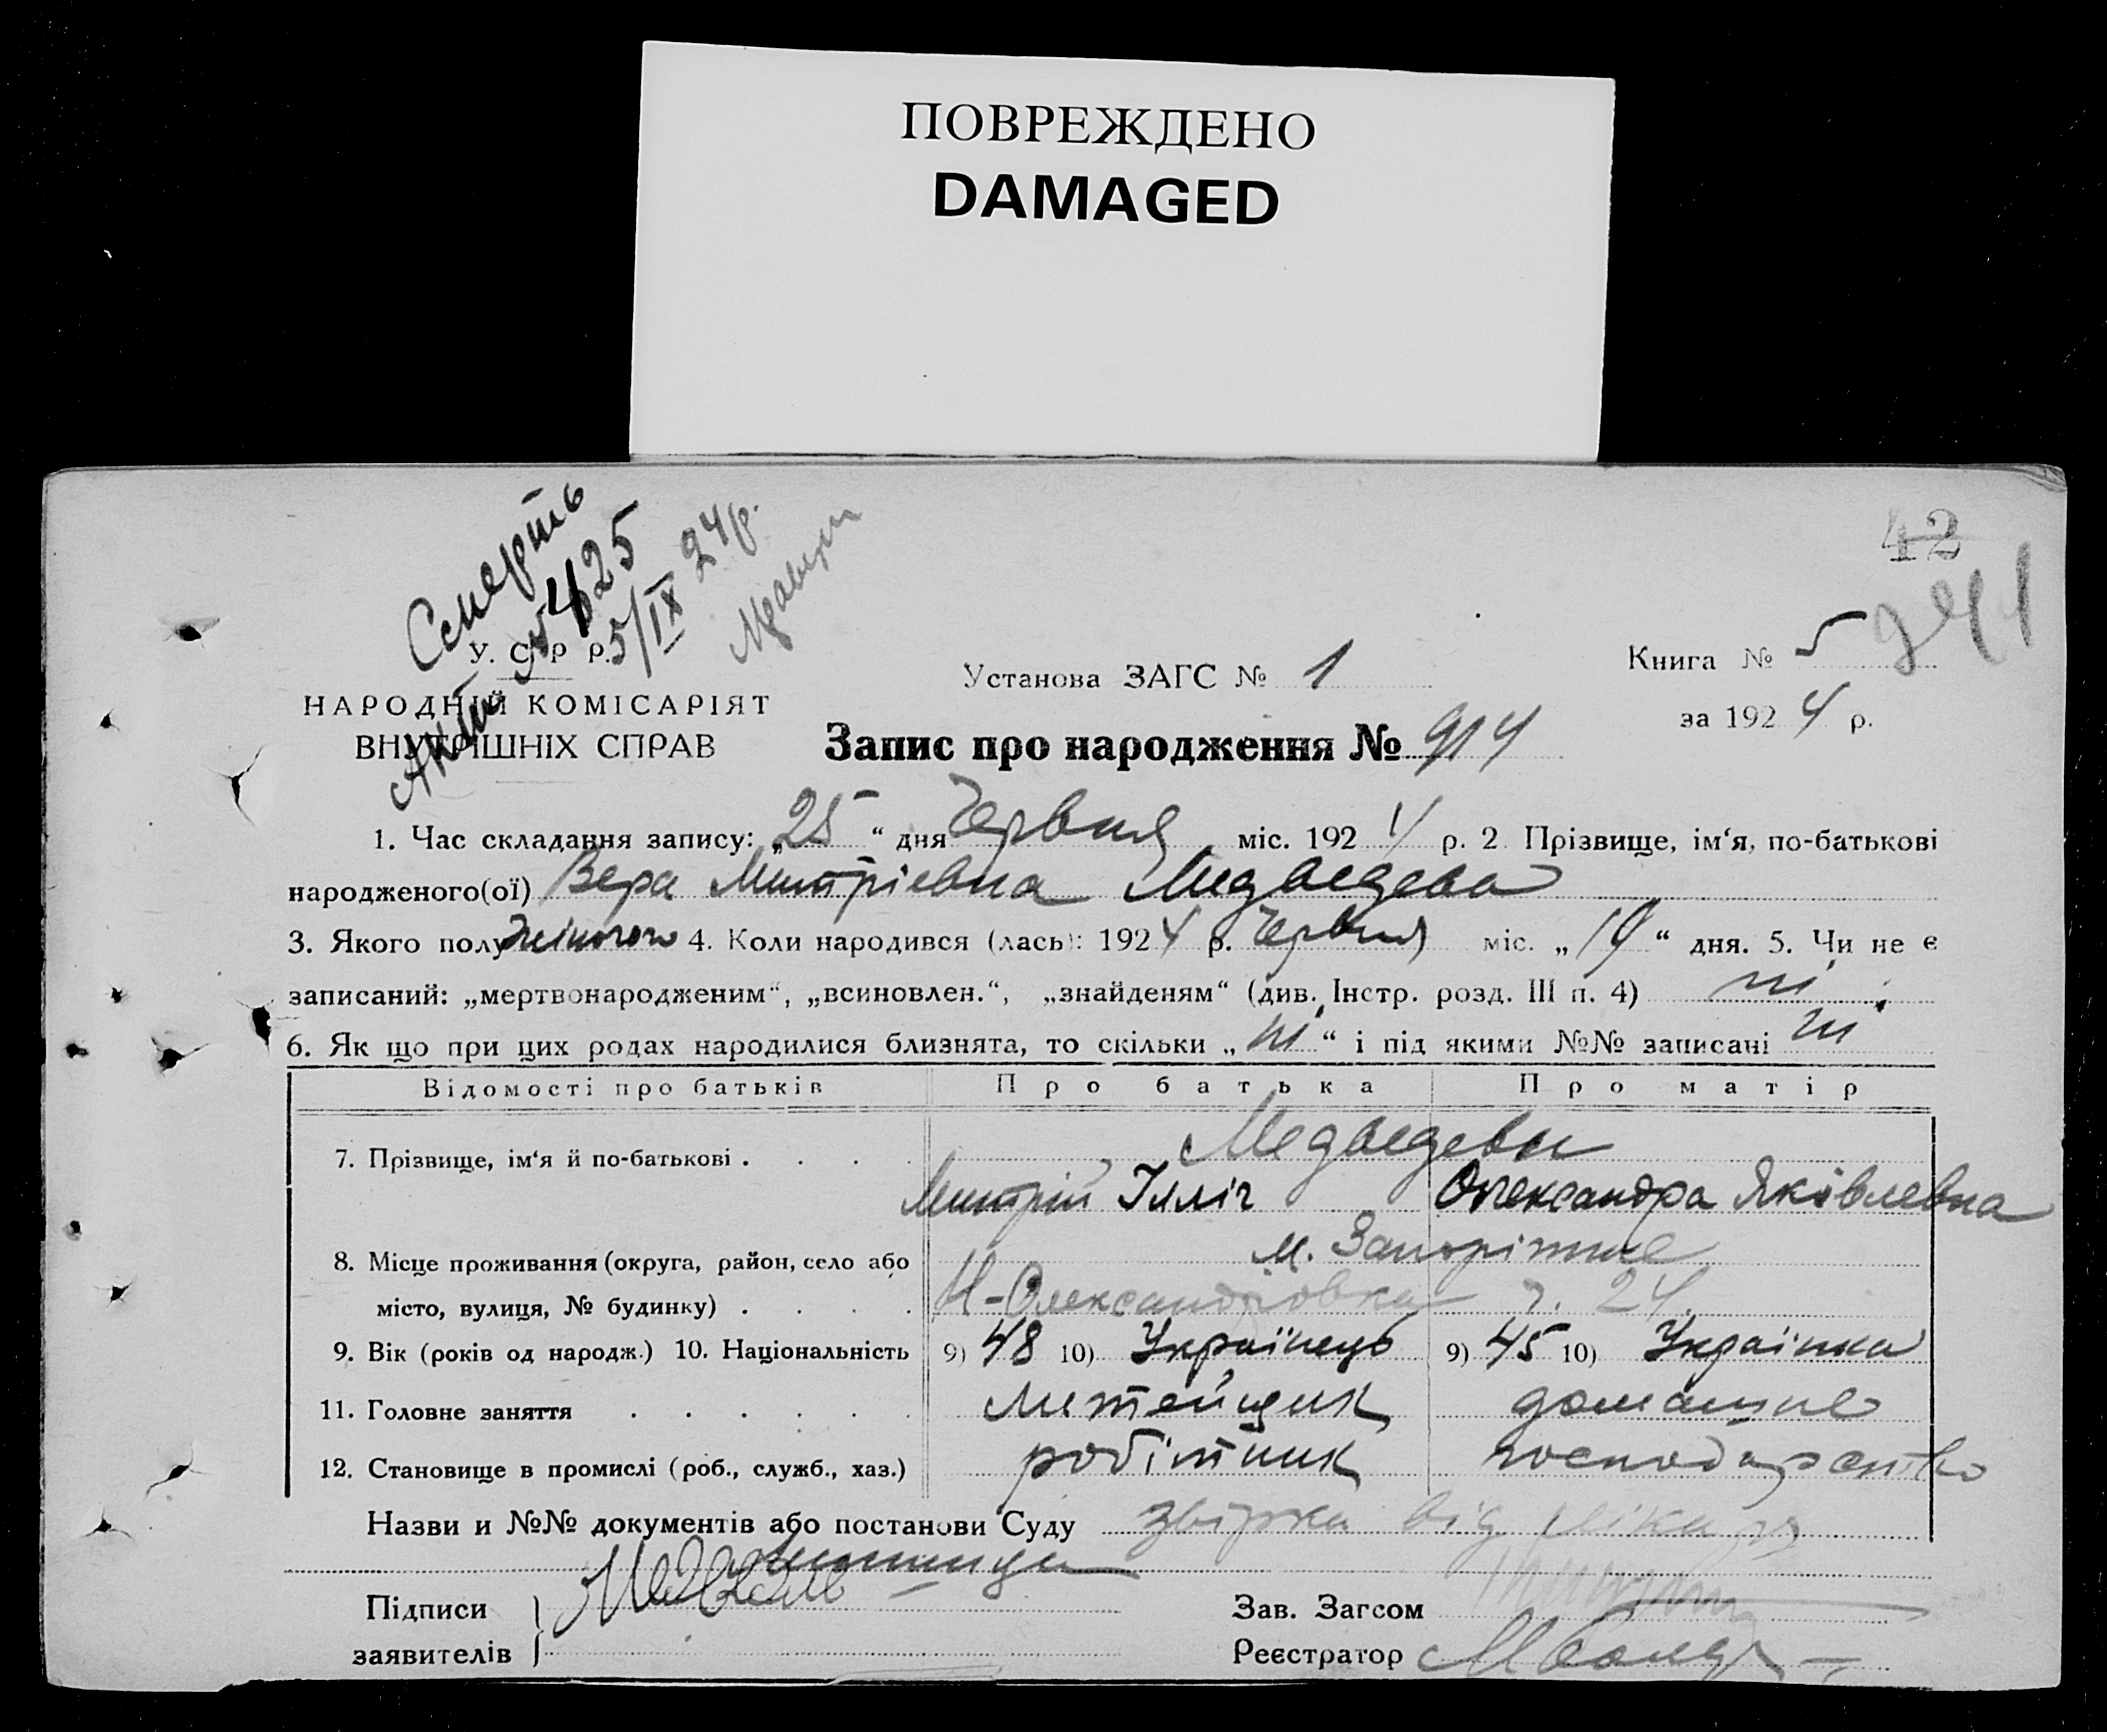 ПОВРЕЖДЕНО
DAMAGED
42
Смерть
Акт № 425
5/IX 24 р.
241
У. С. Р. Р.
НАРОДНІЙ КОМІСАРІЯТ
ВНУТРІШНІХ СПРАВ
Установа ЗАГС № 1
Книга № 5
за 1924 р.
Запис про народження № 914
1. Час складання запису: „25“ дня Червня міс. 1924 р. 2. Прізвище, ім‘я, по-батькові
народженого(ої) Вера Митріевна Медведева
3. Якого полу жіночого 4. Коли народився (лась): 1924 р. Червня міс. „19“ дня. 5. Чи не є
записаний: „мертвонародженим“, „всиновлен.“, „знайденям“ (див. Інстр. розд. III п. 4) ні
6. Як що при цих родах народилися близнята, то скільки „ні“ і під якими №№ записані ні
Відомості про батьків Про батька Про матір
7. Прізвище, ім‘я й по-батькові . . . . Медведеви
Митрій Ілліч Олександра Яківлевна
8. Місце проживання (округа, район, село або м. Запоріжже
місто, вулиця, № будинку) . . . . Н-Олександрівка 24
9. Вік (років од народж.) 10. Національність 9) 48 10) Українець 9) 45 10) Українка
11. Головне заняття . . . . . . Литейщик домашне
12. Становище в промислі (роб., служб., хаз.) робітник господарство
Назви и №№ документів або постанови Суду звірка від лікаря
Підписи
заявителів
Зав. Загсом
Реєстратор